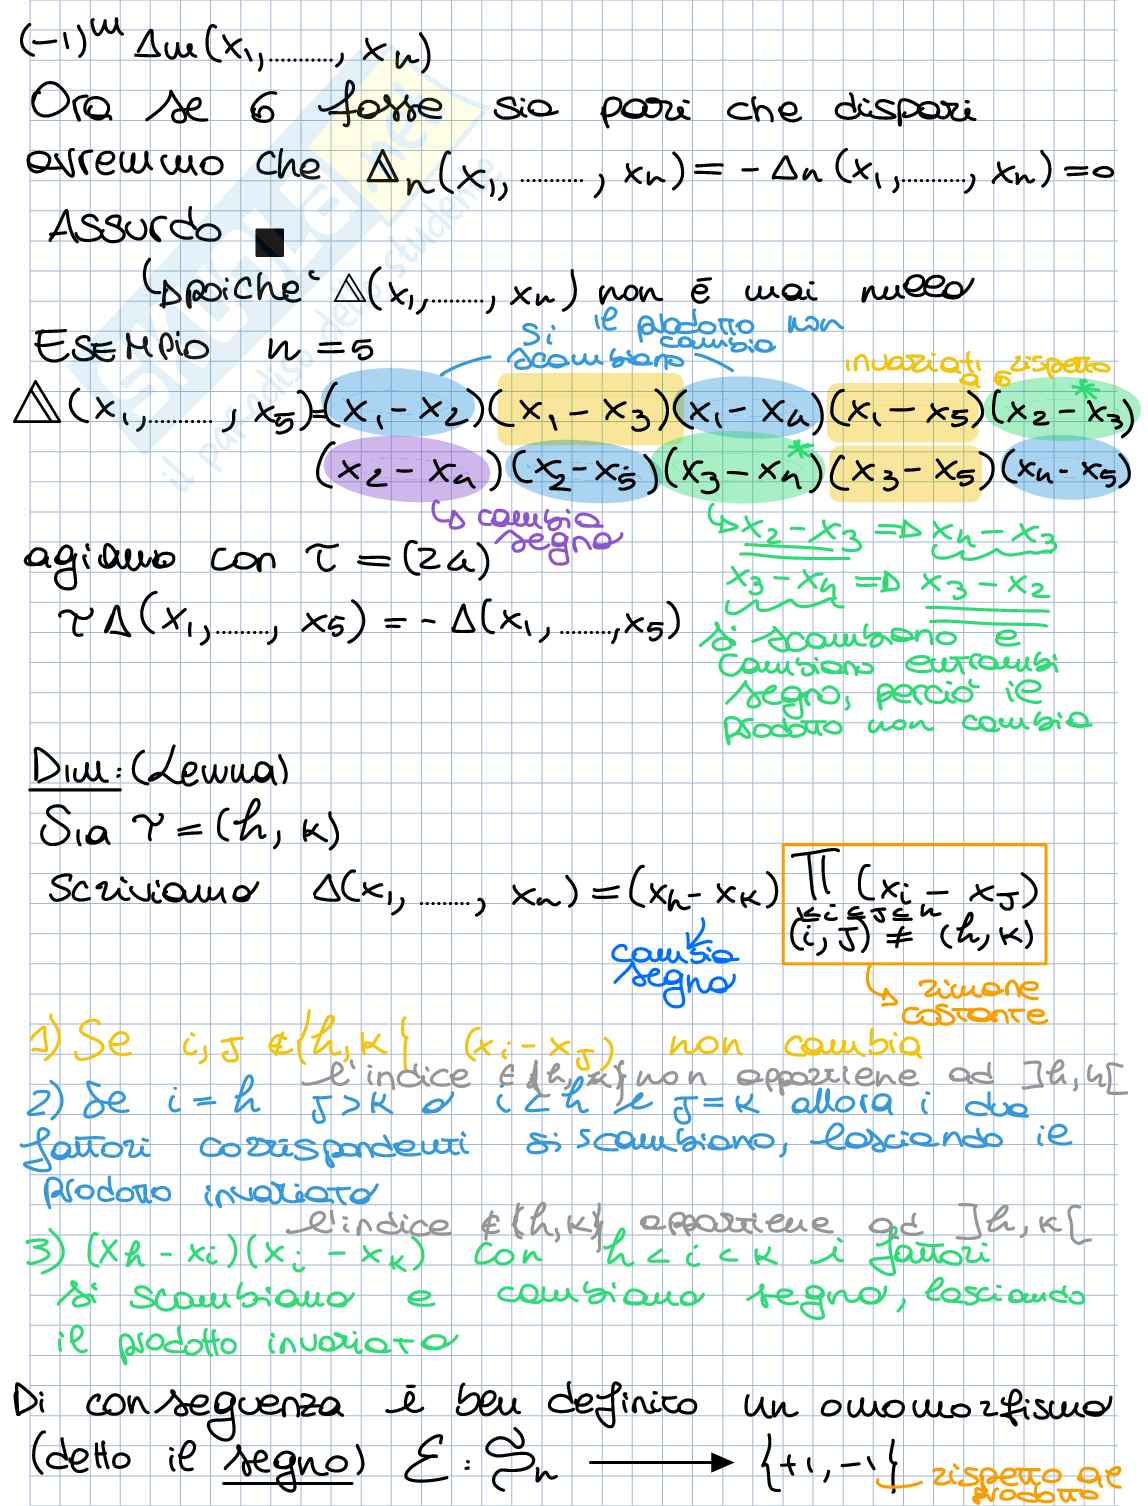 (-1)^m Δm(x₁,..........., xn)
Ora se σ fosse sia pari che dispari
avremmo che Δn(x₁, ..........., xn) = - Δn (x₁,.........., xn) = 0
Assurdo ■
↳ poiche' Δ(x₁,........, xn) non è mai nullo
Esempio n = 5
si scambiano
il prodotto non cambia
invariati rispetto a σ
Δ(x₁,..........., x₅)=(x₁-x₂)(x₁-x₃)(x₁-x₄)(x₁-x₅)(x₂-x₃)*
(x₂-x₄)(x₂-x₅)(x₃-x₄)*(x₃-x₅)(x₄-x₅)
↳ cambia segno
agiamo con τ = (24)
τΔ(x₁,........, x₅) = - Δ(x₁,........,x₅)
↳ x₂-x₃ ⇒ x₄-x₃
x₃-x₄ ⇒ x₃-x₂
si scambiano e
cambiano entrambi
segno, perciò il
prodotto non cambia
Dim: (Lemma)
Sia τ = (h, k)
scriviamo Δ(x₁, ........, xn) = (xh - xk) ∏ (xi - xJ)
1≤i≤J≤n
(i, J) ≠ (h, k)
cambia segno
↳ rimane costante
1) Se i, J ∉ {h, k} (xi - xJ) non cambia
l'indice ∉ {h, k} non appartiene ad ]h, k[
2) Se i = h J > k o i < h e J = k allora i due
fattori corrispondenti si scambiano, lasciando il
prodotto invariato
l'indice ∉ {h, k} appartiene ad ]h, k[
3) (xh - xi)(xi - xk) con h < i < k i fattori
si scambiano e cambiano segno, lasciando
il prodotto invariato
Di conseguenza è ben definito un omomorfismo
(detto il segno) ε : Sn ⟶ {+1, -1}
rispetto al prodotto